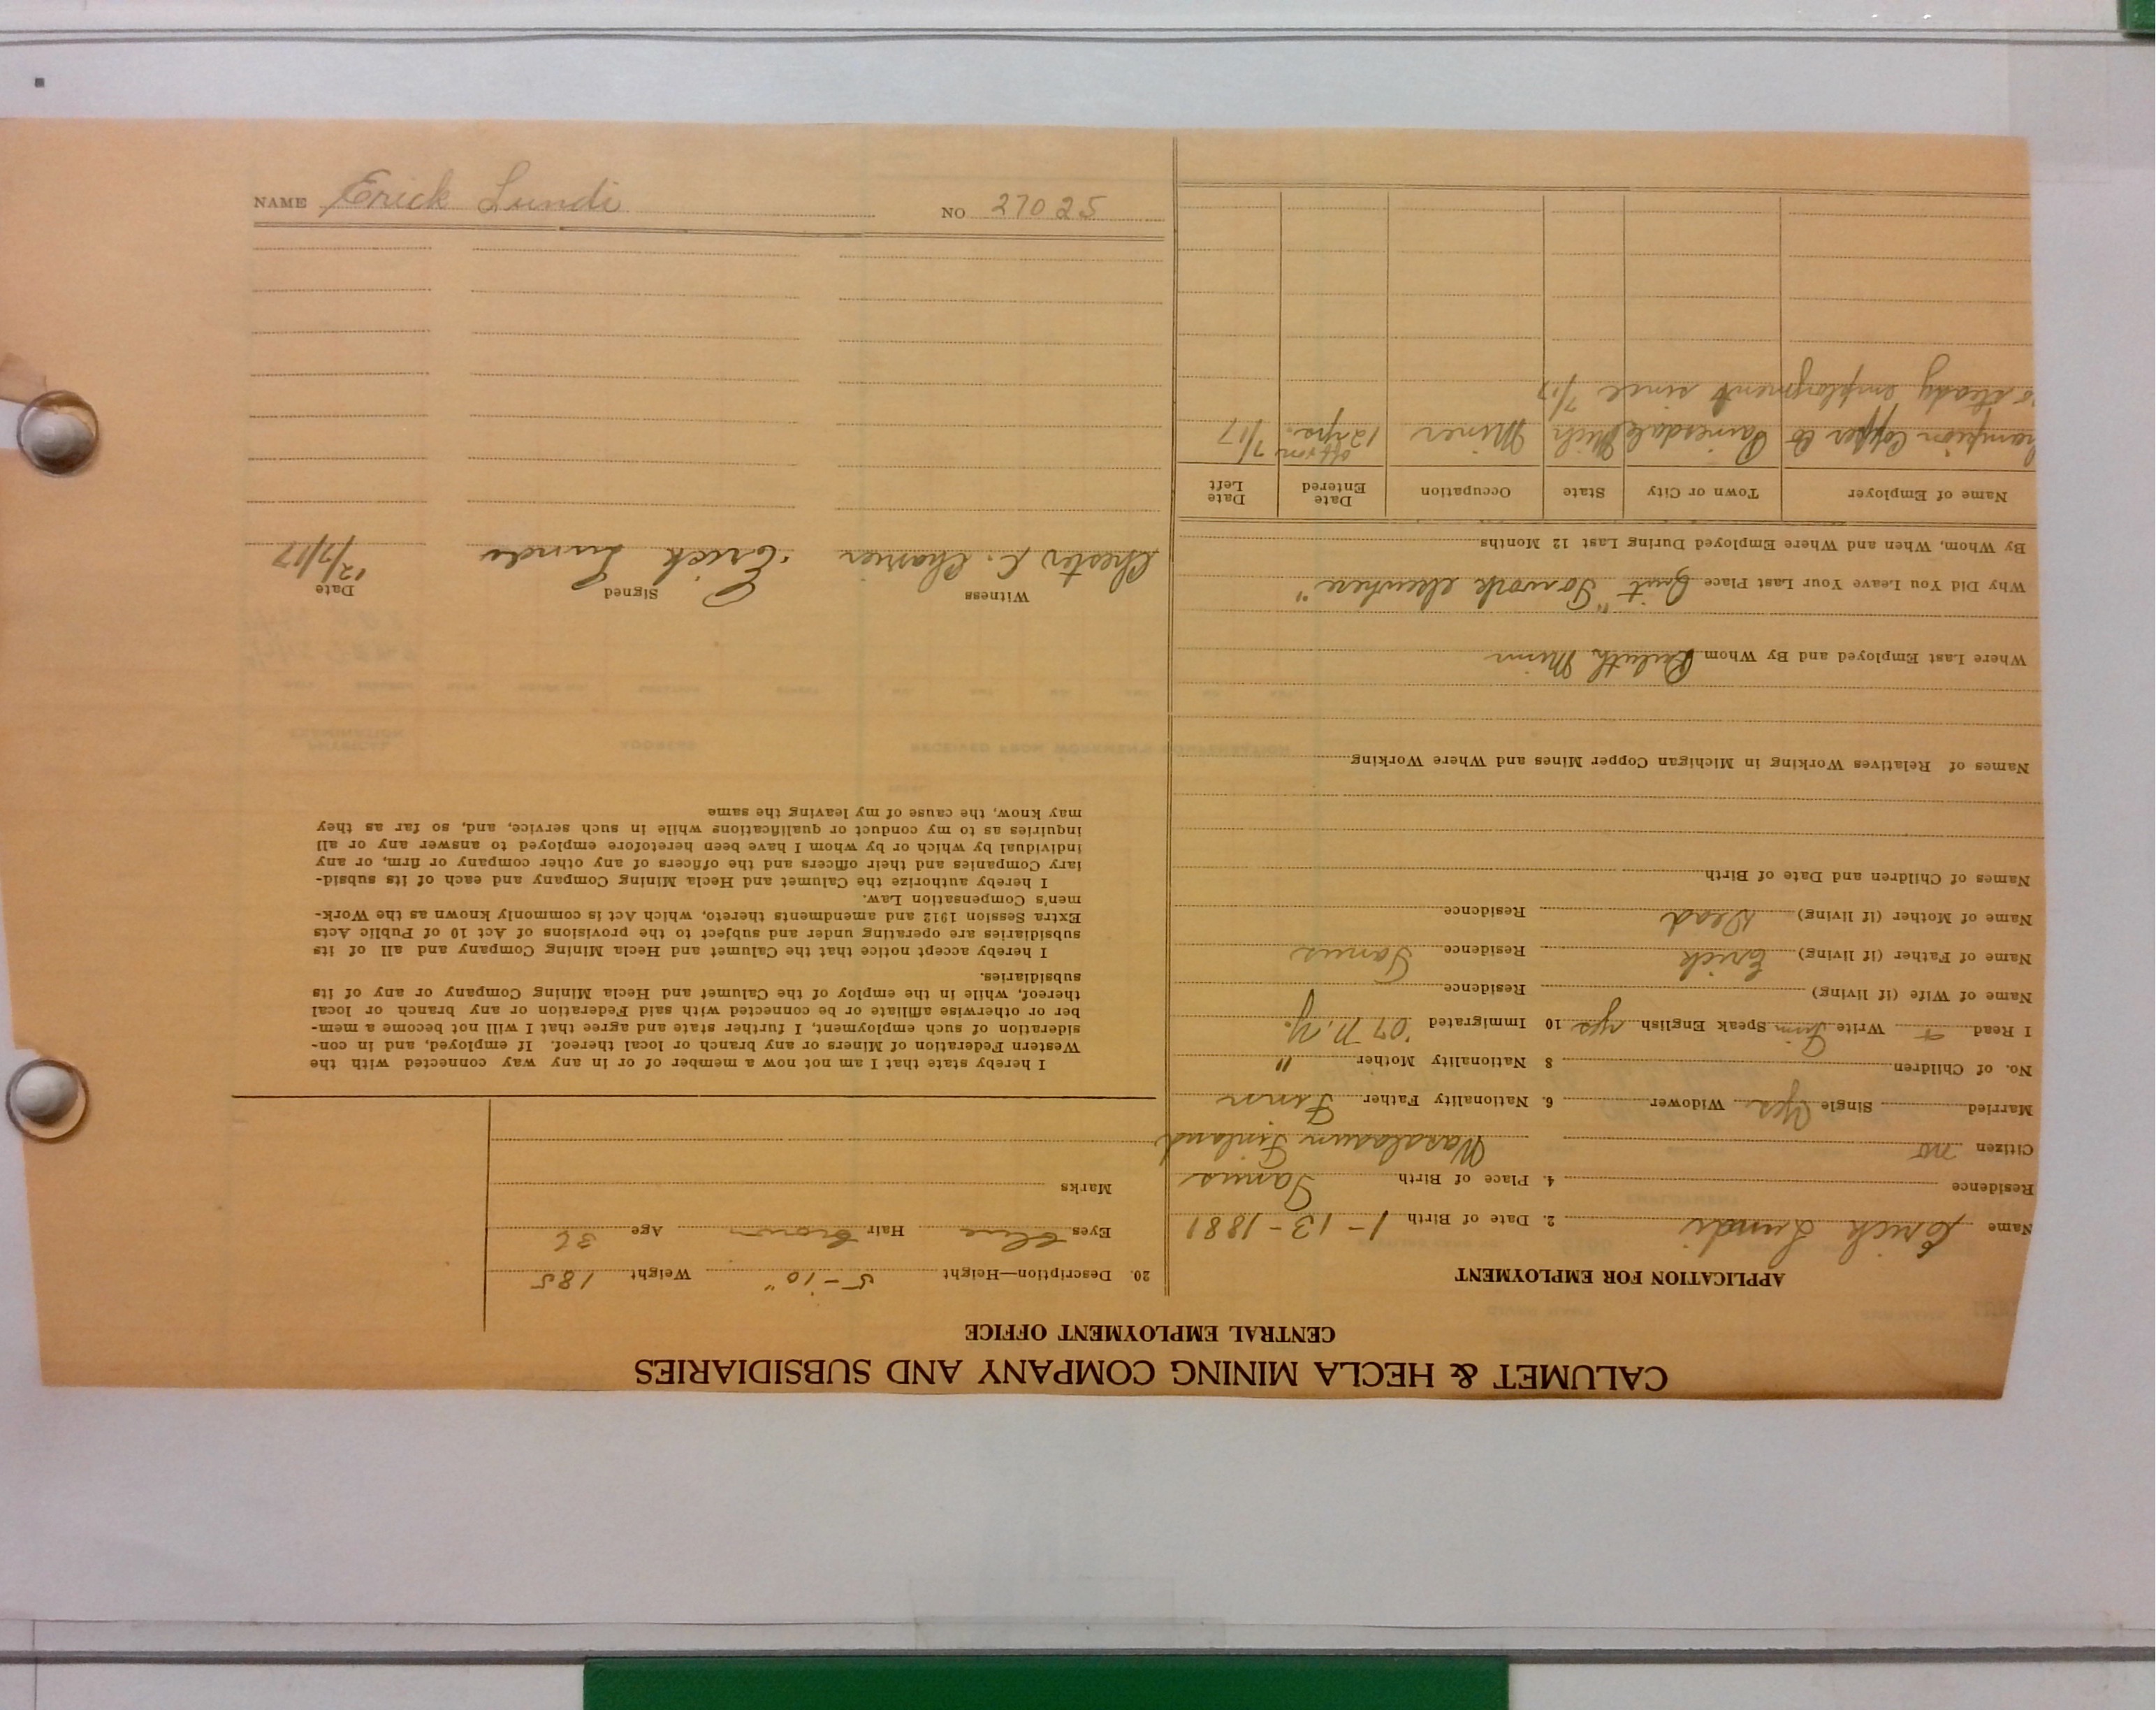 CALUMET & HECLA MINING COMPANY AND SUBSIDIARIES
CENTRAL EMPLOYMENT OFFICE
APPLICATION FOR EMPLOYMENT
Name Erick Lundi 2. Date of Birth 1-13-1881
Residence 4. Place of Birth
Citizen no Finland
Married Single Yes Widower 6. Nationality Father Finn
No. of Children 8 Nationality Mother "
I Read + Write Finn Speak English yes 10 Immigrated '07 N.Y.
Name of Wife (if living) Residence
Name of Father (if living) Erick Residence
Name of Mother (if living) Dead Residence
Names of Children and Date of Birth
Names of Relatives Working in Michigan Copper Mines and Where Working
Where Last Employed and By Whom Duluth Minn
Why Did You Leave Your Last Place Quit "To work elsewhere"
By Whom, When and Where Employed During Last 12 Months
Name of Employer Town or City State Occupation Date Entered Date Left
Copper Co Painesdale Mich Miner off & on 12 yrs. 7/17
steady employment since 7/17
20. Description—Height 5-10" Weight 185
Eyes blue Hair brown Age 36
Marks
I hereby state that I am not now a member of or in any way connected with the
Western Federation of Miners or any branch or local thereof. If employed, and in con-
sideration of such employment, I further state and agree that I will not become a mem-
ber or otherwise affiliate or be connected with said Federation or any branch or local
thereof, while in the employ of the Calumet and Hecla Mining Company or any of its
subsidiaries.
I hereby accept notice that the Calumet and Hecla Mining Company and all of its
subsidiaries are operating under and subject to the provisions of Act 10 of Public Acts
Extra Session 1912 and amendments thereto, which Act is commonly known as the Work-
men's Compensation Law.
I hereby authorize the Calumet and Hecla Mining Company and each of its subsid-
iary Companies and their officers and the officers of any other company or firm, or any
individual by which or by whom I have been heretofore employed to answer any or all
inquiries as to my conduct or qualifications while in such service, and, so far as they
may know, the cause of my leaving the same
Witness Signed Date
Chester Erick Lundi 12/7/17
NAME Erick Lundi NO 27025